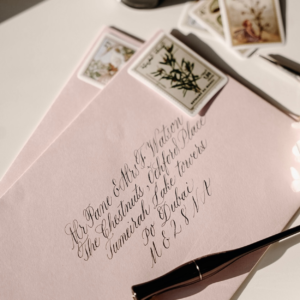 Mr Pane & Mrs F Watson
The Chestnuts, Ochford Place
Jumeirah Lake towers
Po Dubai
M E 2 8 N A